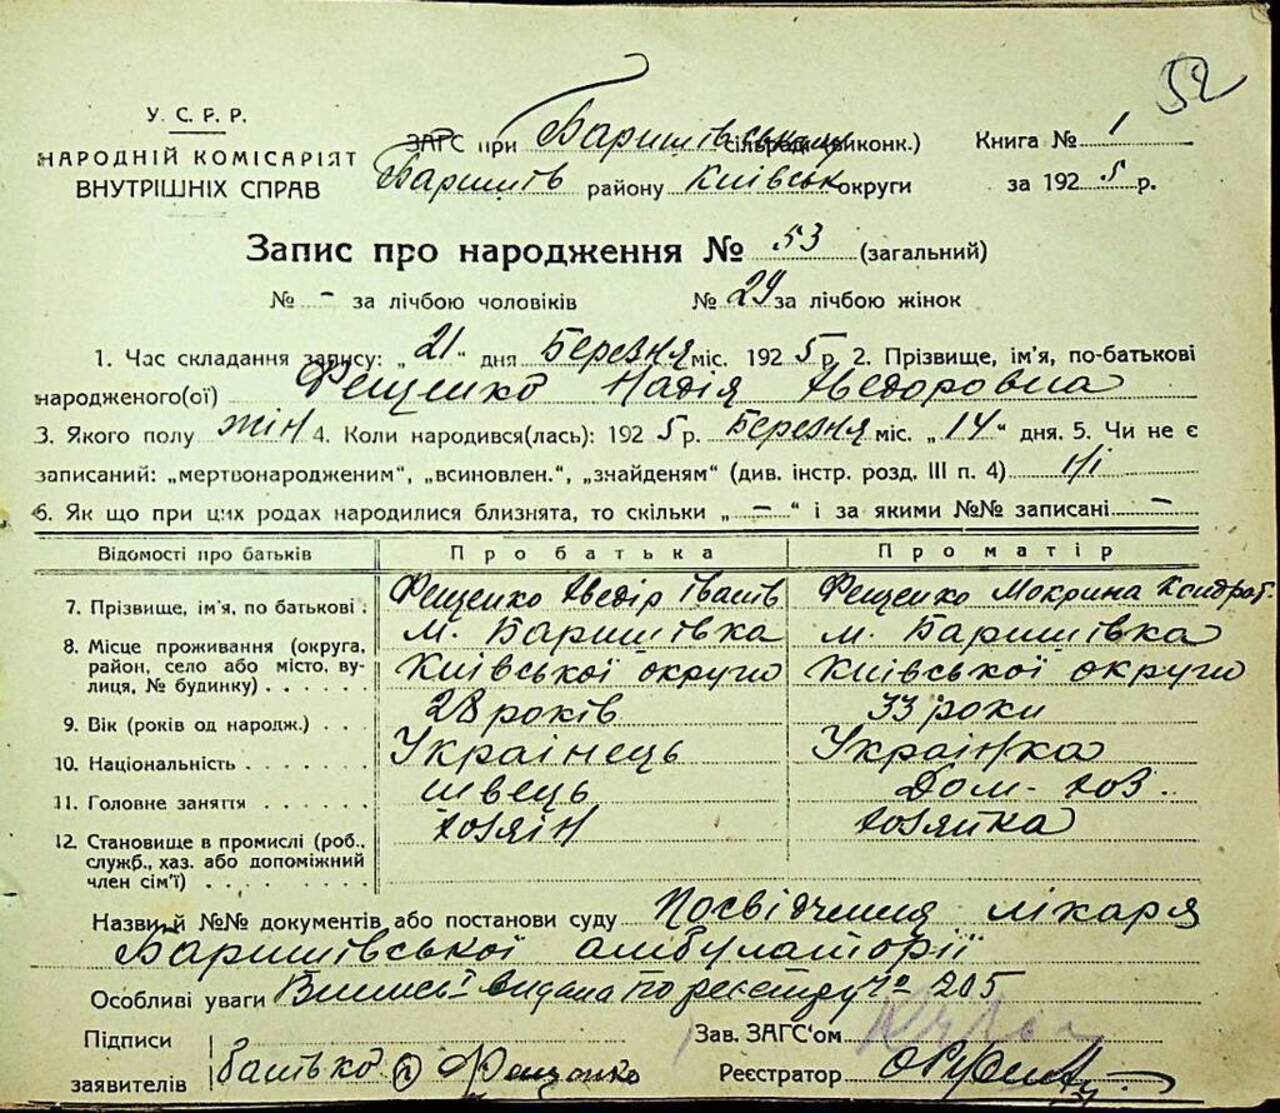 52
У. С. Р. Р.
НАРОДНІЙ КОМІСАРІЯТ
ВНУТРІШНІХ СПРАВ
ЗАГС при Баришівськ сільради (виконк.)
Баришів району Київськ округи
Книга № 1
за 1925 р.
Запис про народження № 53 (загальний)
№ - за лічбою чоловіків № 29 за лічбою жінок
1. Час складання запису: „21“ дня Березня міс. 1925 р. 2. Прізвище, ім'я, по-батькові
народженого(ої) Фещенко Надія Хведоровна
3. Якого полу жін 4. Коли народився(лась): 1925 р. Березня міс. „14“ дня. 5. Чи не є
записаний: „мертвонародженим“, „всиновлен.“, „знайденям“ (див. інстр. розд. III п. 4) Ні
6. Як що при цих родах народилися близнята, то скільки „ - “ і за якими №№ записані -
Відомості про батьків Про батька Про матір
7. Прізвище, ім'я, по батькові . Фещенко Хведір Іванів Фещенко Мокрина Кондрат.
8. Місце проживання (округа, район, село або місто, вулиця, № будинку) . . . . . . м. Баришівка м. Баришівка
Київської округи Київської округи
9. Вік (років од народж.) . . . 28 років 33 роки
10. Національність . . . . . . . Українець Українка
11. Головне заняття . . . . . . швець Дом. хоз.
12. Становище в промислі (роб., служб., хаз. або допоміжний член сім'ї) . . . . . . . . хозяїн хозяйка
Назви й №№ документів або постанови суду Посвідчення лікаря
Баришівської амбулаторії
Особливі уваги Випись видана по реєстру № 205
Підписи
заявителів
батько Фещенко
Зав. ЗАГС'ом
Реєстратор